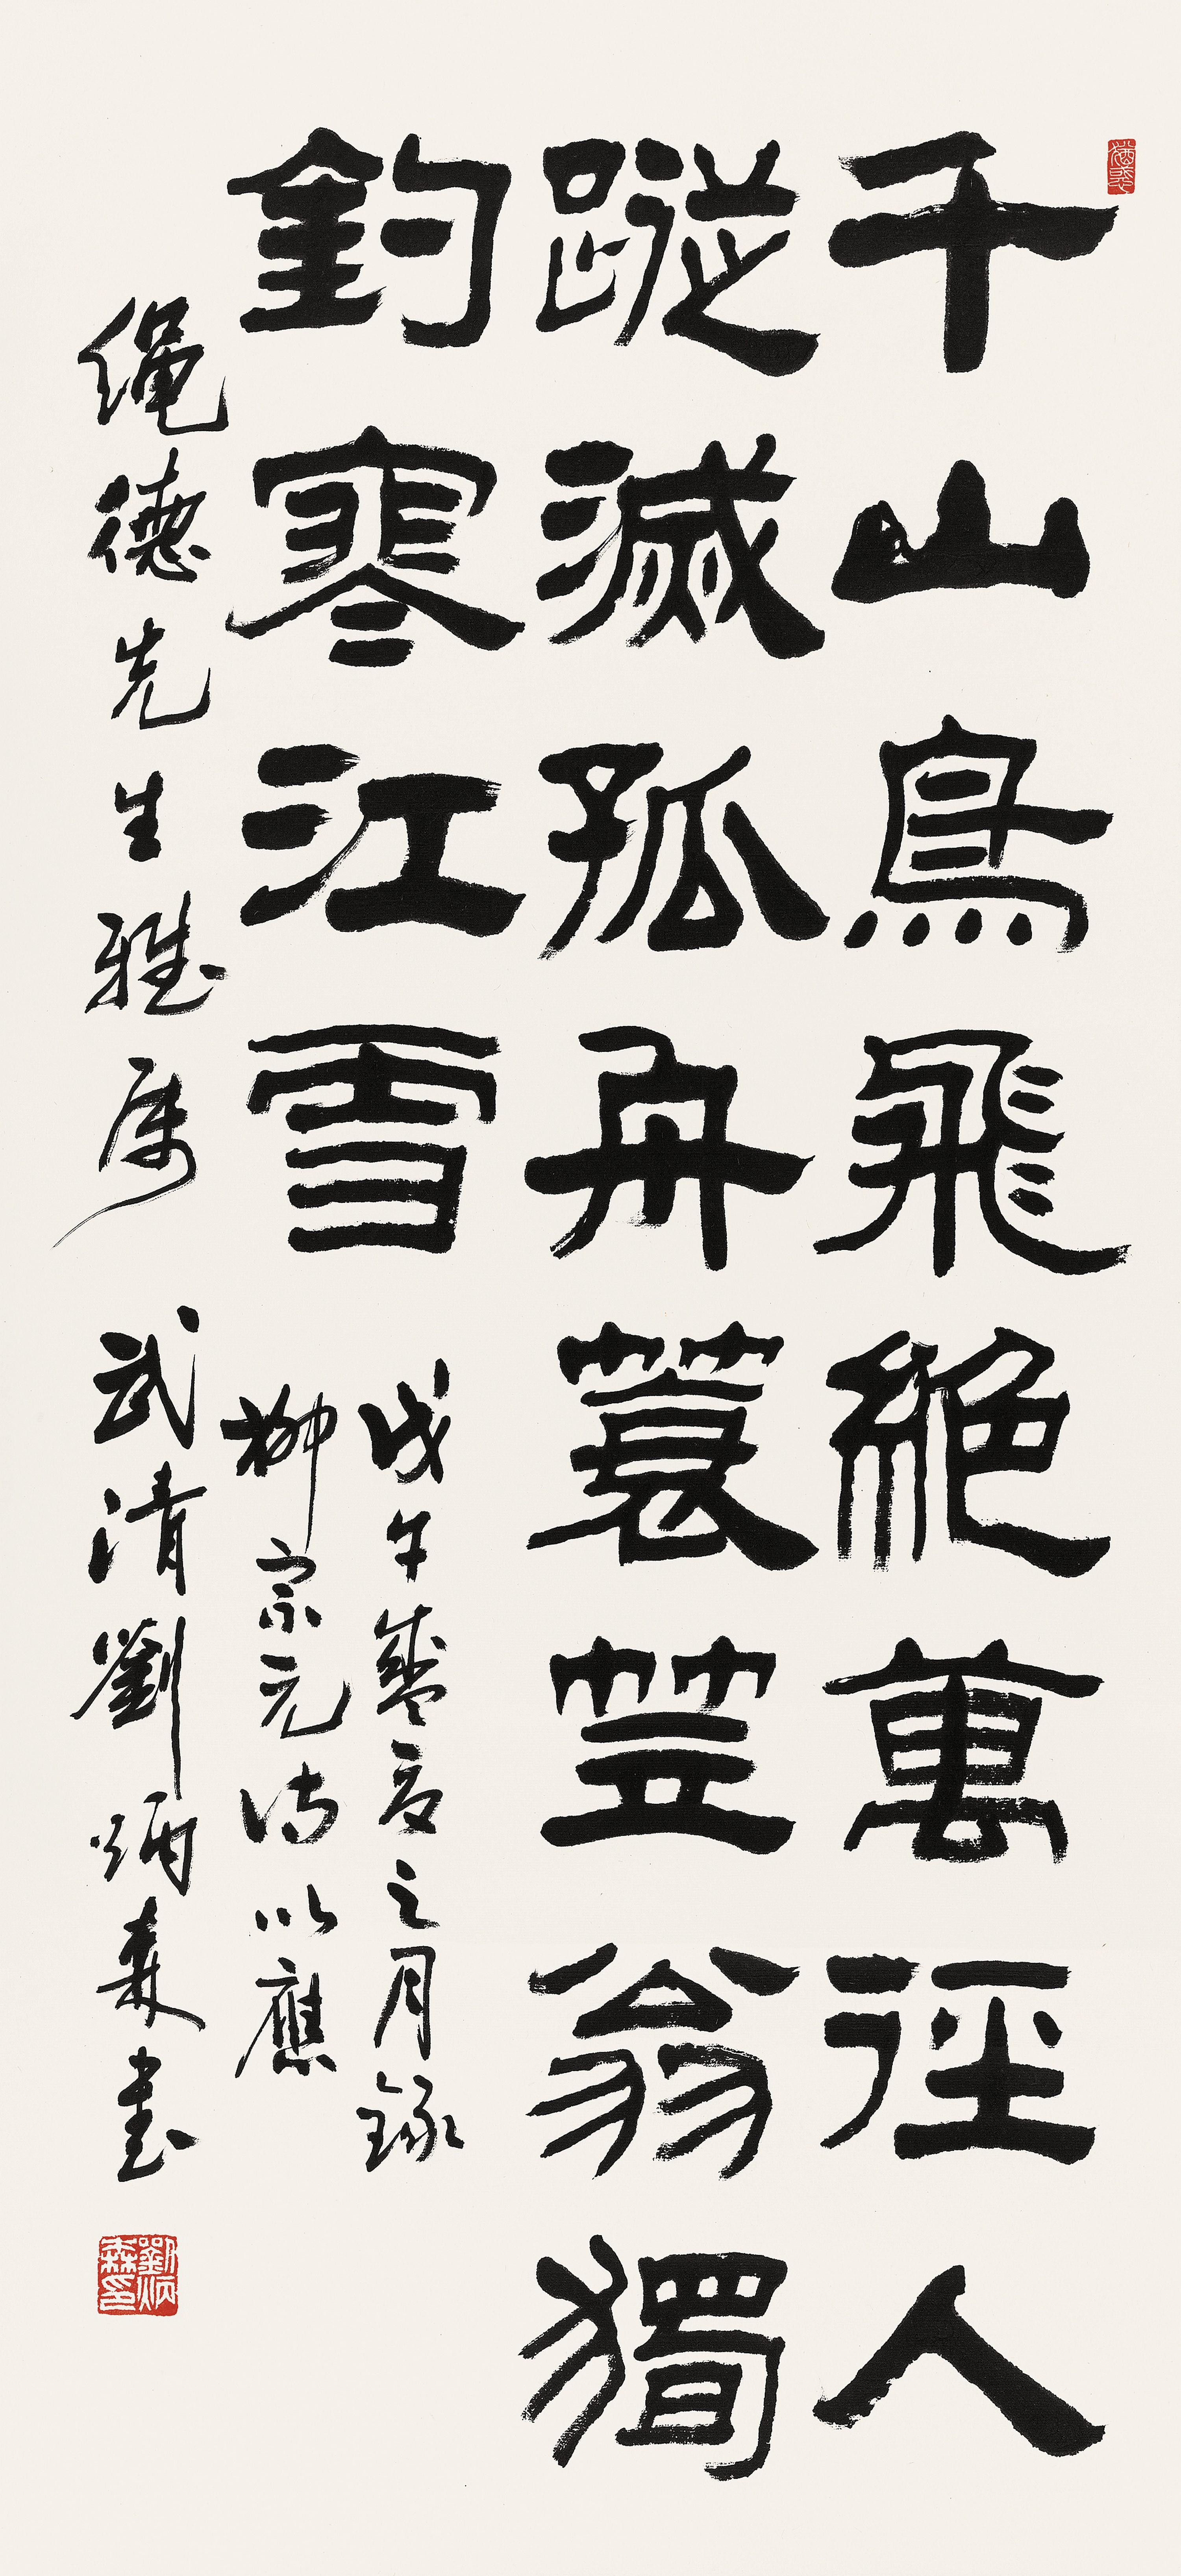 千山鳥飛絕萬徑人
蹤滅孤舟蓑笠翁獨
釣寒江雪
戊午盛夏之月錄
柳宗元詩以應
繩德先生雅属
武清劉炳森書
劉炳森印